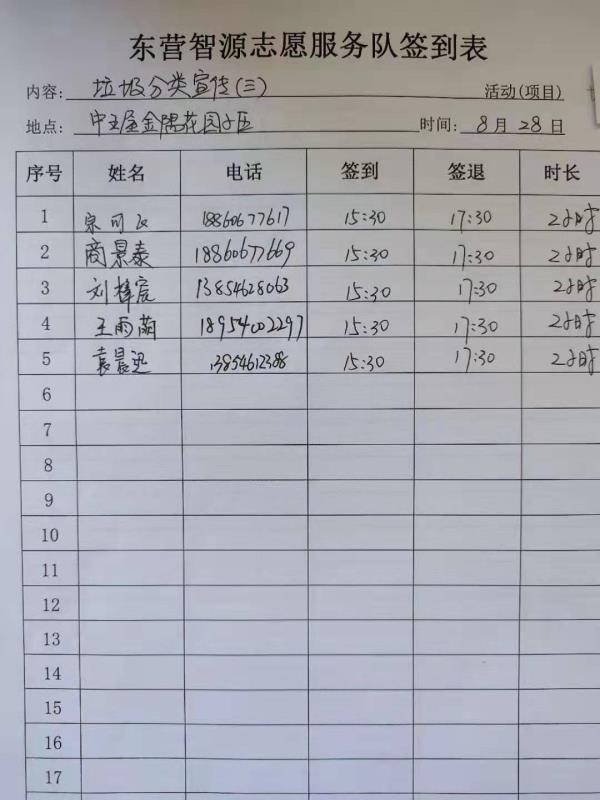 东营智源志愿服务队签到表
内容: 垃圾分类宣传(三) 活动(项目)
地点: 金隅花园小区 时间: 8月28日
序号 姓名 电话 签到 签退 时长
1 18860677617 15:30 17:30 2小时
2 商景泰 18860677669 15:30 17:30 2小时
3 刘梓宸 13854628063 15:30 17:30 2小时
4 王雨菡 18954002297 15:30 17:30 2小时
5 袁晨迅 13854612388 15:30 17:30 2小时
6
7
8
9
10
11
12
13
14
15
16
17